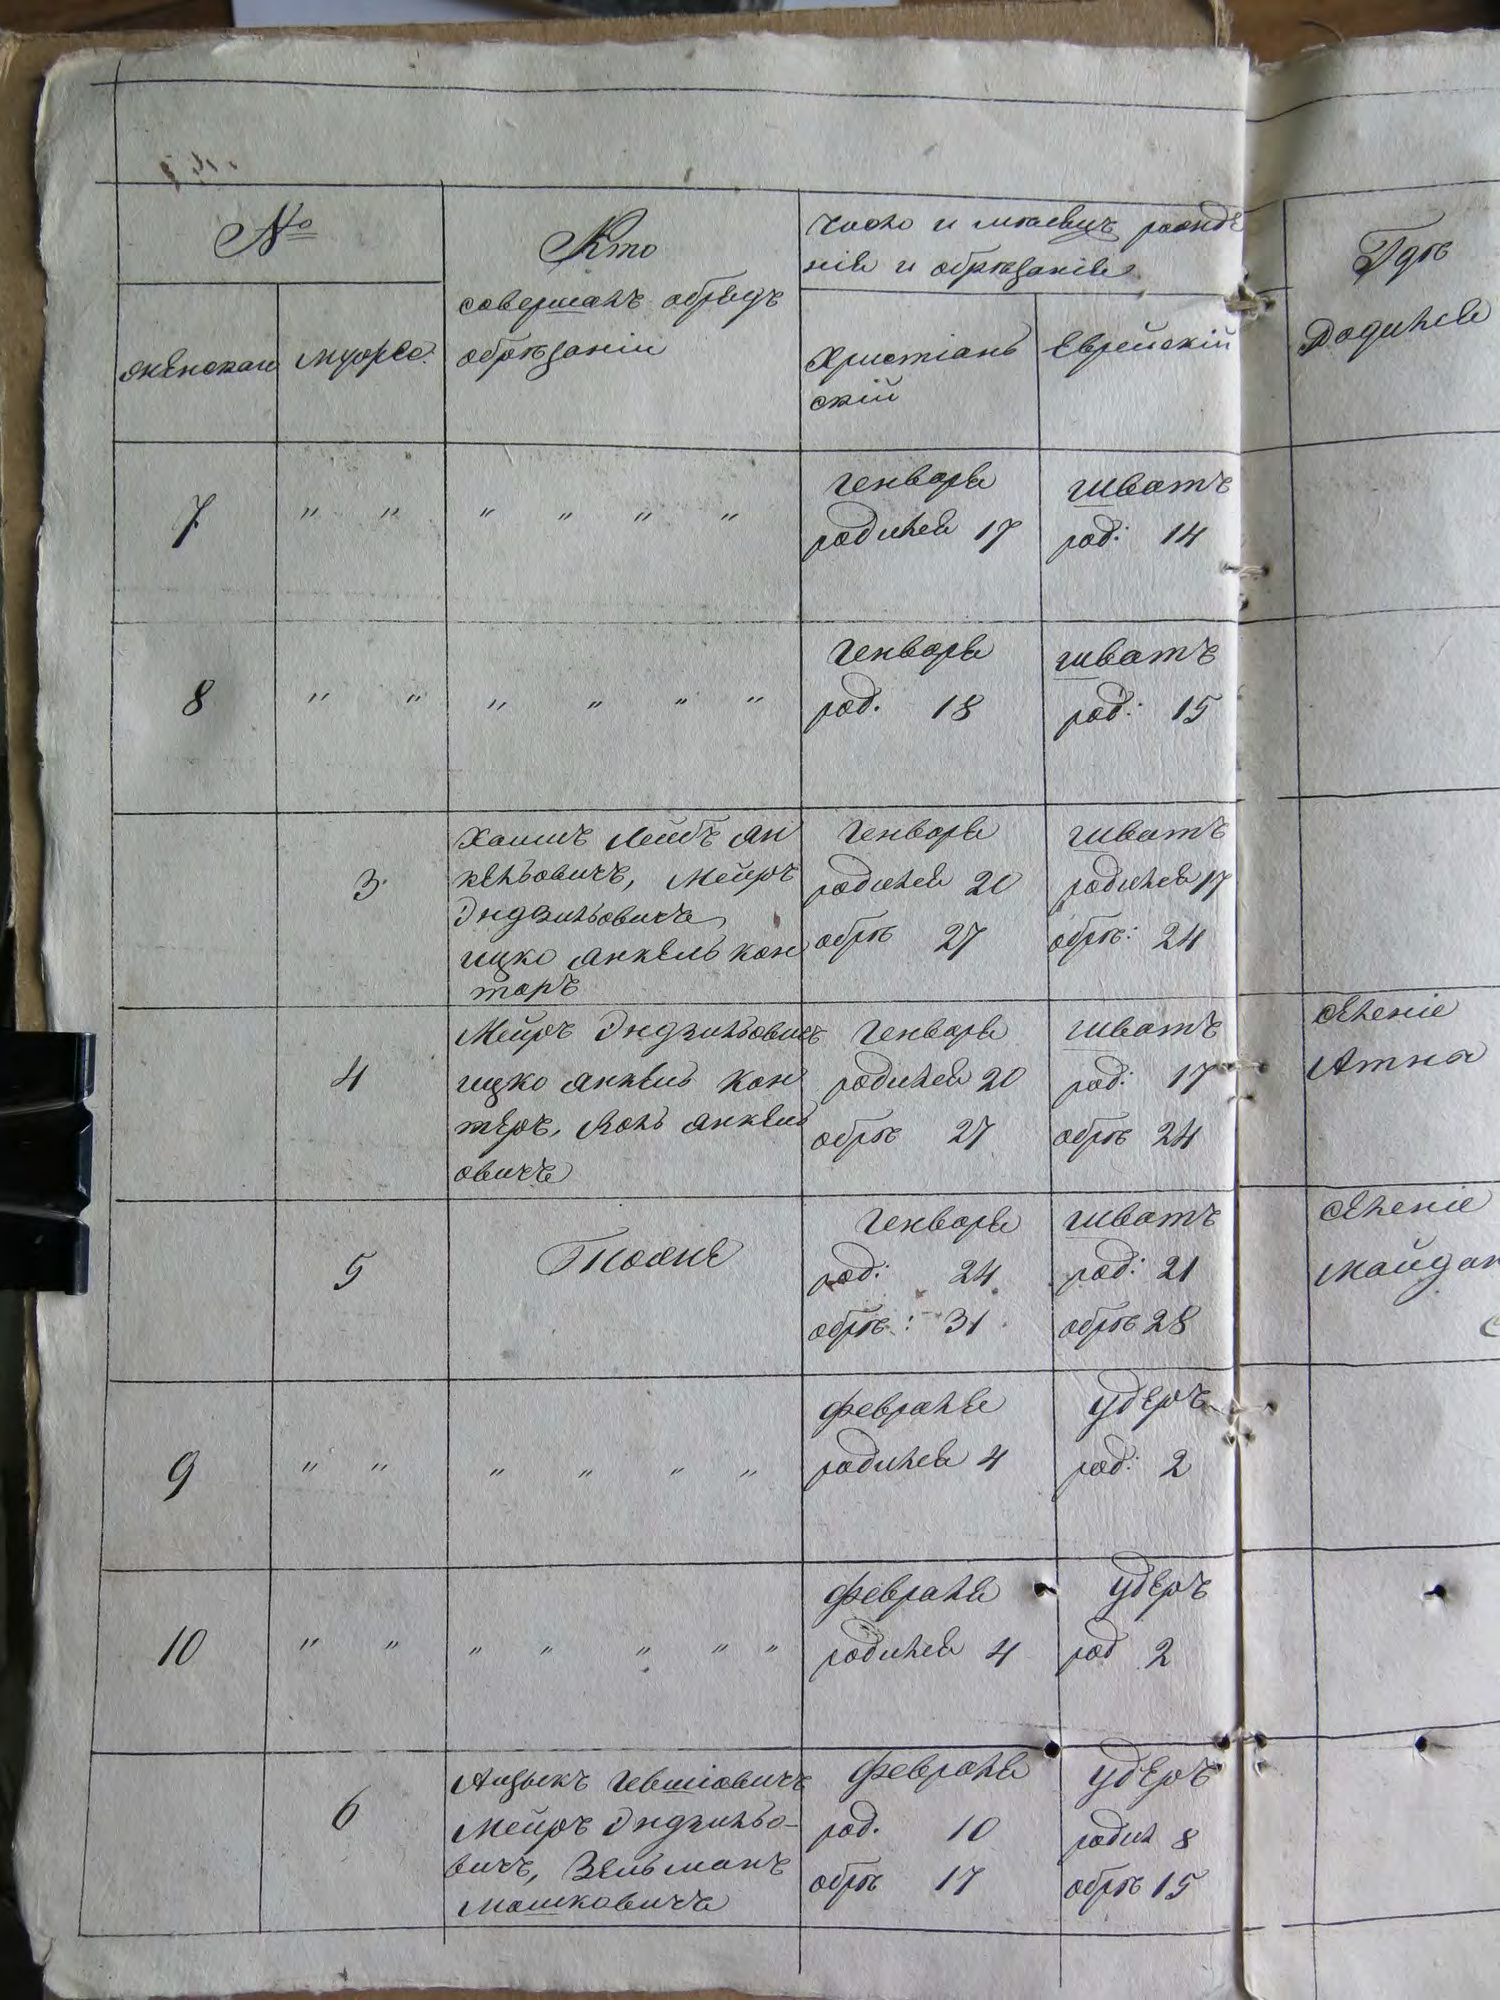 №
Кто
совершалъ обрядъ
обрѣзанія
Число и мѣсяцъ рожде
нія и обрѣзанія
Гдѣ
Родился
женскаго
мужеск.
Христіань
скій
Еврейскій
7
" "
" " " "
Генваря
родился 17
шватъ
род: 14
8
" "
" " " "
Генваря
род. 18
шватъ
род: 15
3
Хаимъ Лейбъ Ян
кельовичъ, Мейръ
Эндзельовичъ
ицко Янкель Кан
торъ
Генваря
родился 20
обрѣ 27
шватъ
родился 17
обрѣ: 24
4
Мейръ Эндзельовичъ
ицко Янкель Кан
теръ, Янкель
овичъ
Генваря
родился 20
обрѣ 27
шватъ
род: 17
обрѣ 24
селеніе
5
Тоже
Генваря
род: 24
обрѣ: 31
шватъ
род: 21
обрѣ 28
селеніе
Майдан
9
" "
" " " "
февраля
родился 4
удеръ
род: 2
10
" "
" " " " "
февраля
родился 4
удеръ
род 2
6
Айзыкъ Гевшіовичъ
Мейръ Эндзельо-
вичъ, Зельманъ
Мошковичъ
февраля
род. 10
обрѣ 17
удеръ
родил 8
обрѣ 15